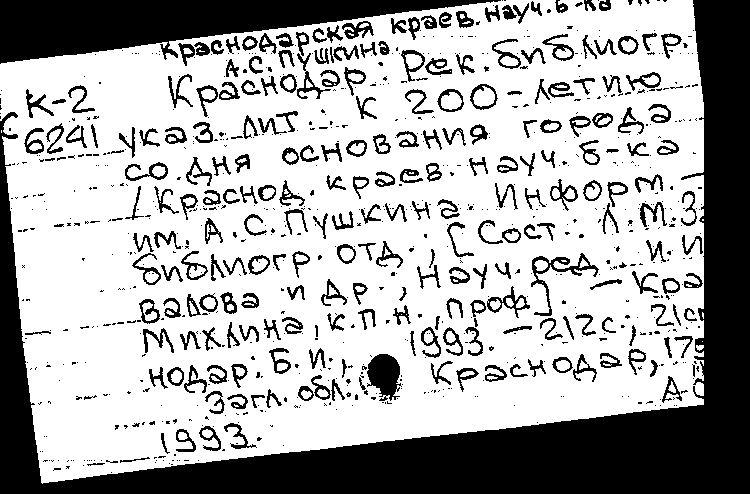 Краснодарская краев. науч. б-ка
А.С. Пушкина.
К-2 Краснодар: Рек. библиогр.
с 6241 указ. лит.: К 200-летию
со дня основания города
/ Краснод. краев. науч. б-ка
им. А.С. Пушкина. Информ.-
библиогр. отд.; [Сост.: Л.М.З
валова и др.; Науч. ред.: И.И
Михлина, к.п.н., проф]. – Кра
нодар: Б.и., 1993. – 212с.; 21с
Загл. обл.: Краснодар, 179
1993.